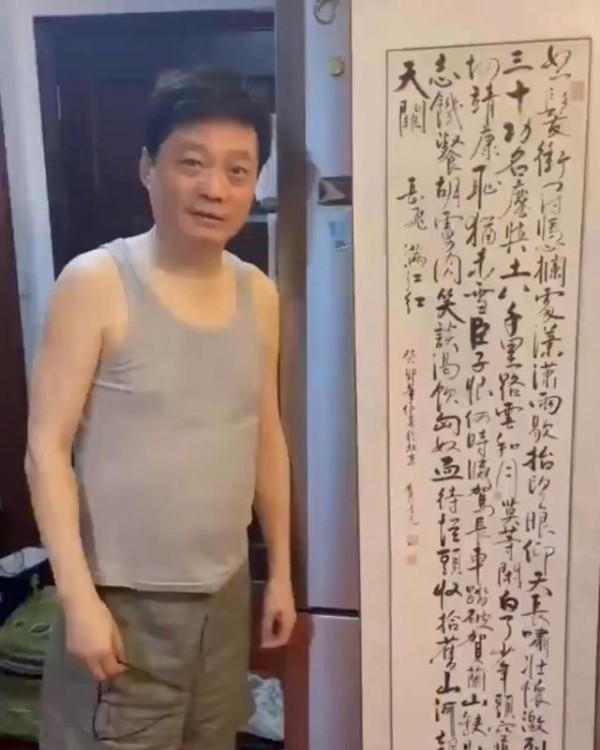 怒髮衝冠憑欄處瀟瀟雨歇抬望眼仰天長嘯壯懷激
三十功名塵與土八千里路雲和月莫等閑白了少年頭空悲
切靖康恥猶未雪臣子恨何時滅駕長車踏破賀蘭山缺
志饑餐胡虜肉笑談渴飲匈奴血待從頭收拾舊山河朝
天闕 岳飛 滿江紅
癸卯年仲夏於北京